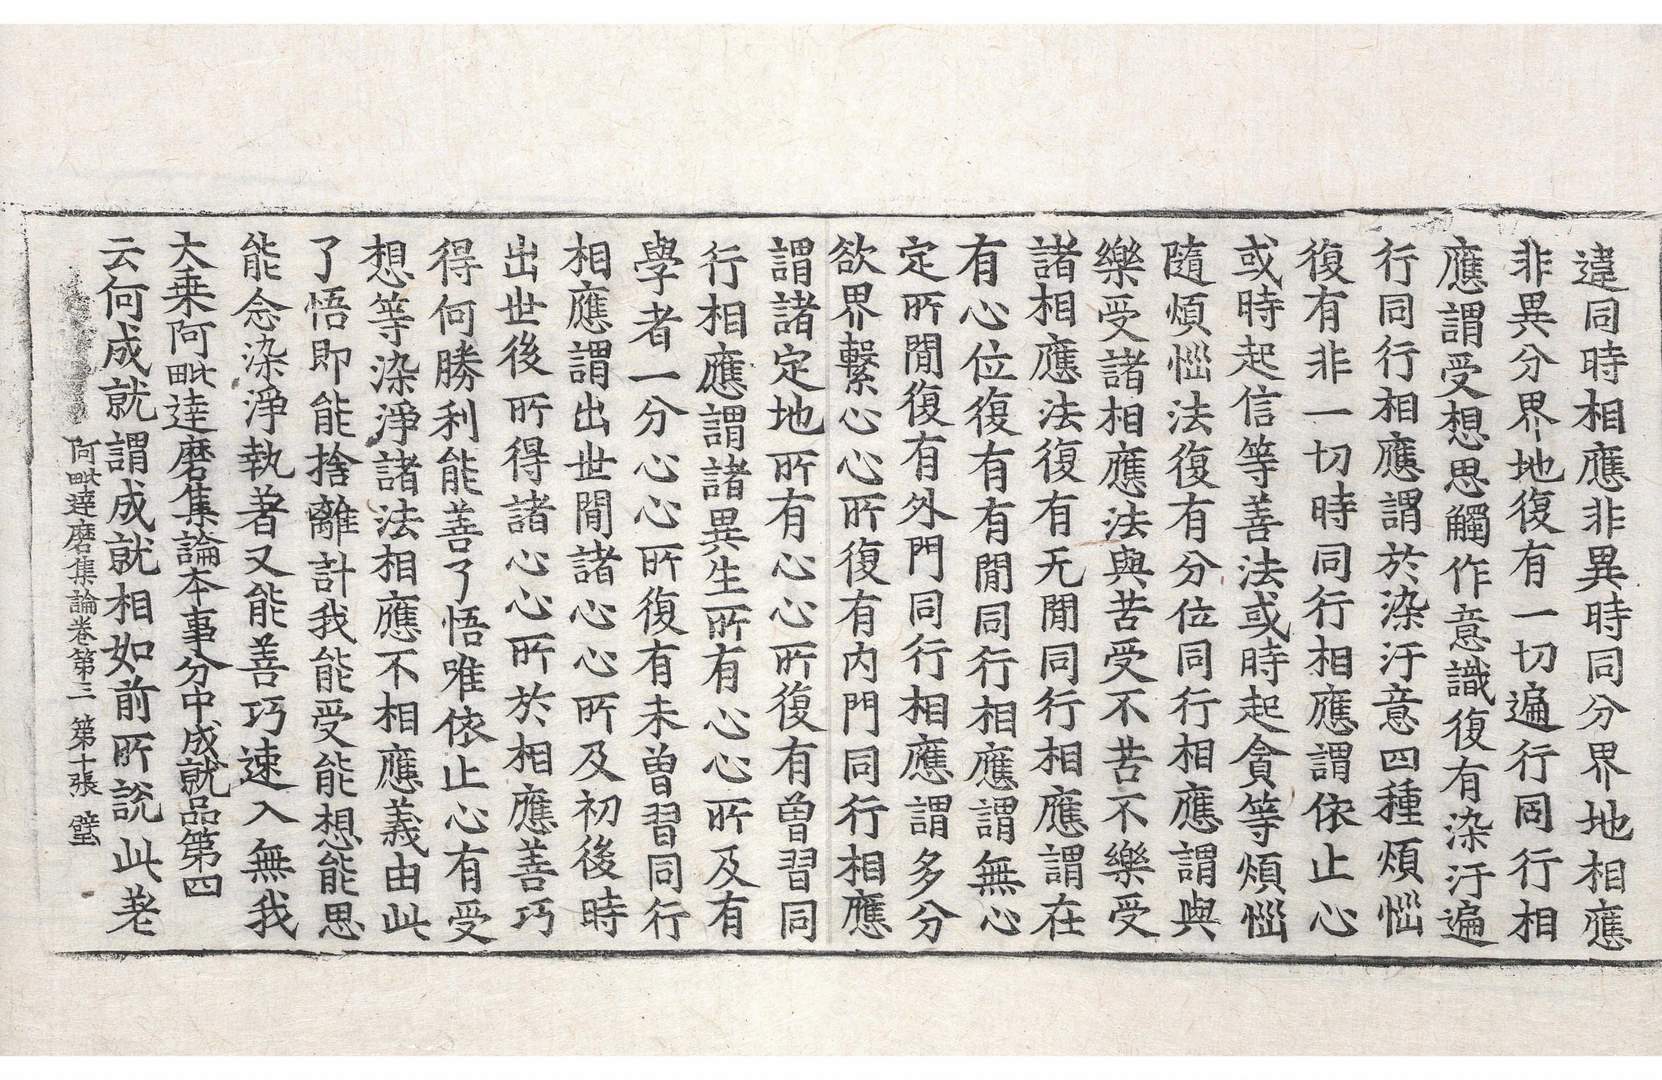 違同時相應非異時同分界地相應
非異分界地復有一切遍行同行相
應謂受想思觸作意識復有染汙遍
行同行相應謂於染汙意四種煩惱
復有非一切時同行相應謂依止心
或時起信等善法或時起貪等煩惱
隨煩惱法復有分位同行相應謂與
樂受諸相應法與苦受不苦不樂受
諸相應法復有无間同行相應謂在
有心位復有有間同行相應謂無心
定所間復有外門同行相應謂多分
欲界繫心心所復有內門同行相應
謂諸定地所有心心所復有曾習同
行相應謂諸異生所有心心所及有
學者一分心心所復有未曾習同行
相應謂出世間諸心心所及初後時
出世後所得諸心心所於相應善巧
得何勝利能善了悟唯依止心有受
想等染淨諸法相應不相應義由此
了悟即能捨離計我能受能想能思
能念染淨執著又能善巧速入無我
大乘阿毗達磨集論本事分中成就品第四
云何成就謂成就相如前所說此差
阿毗達磨集論卷第三 第十張 璧